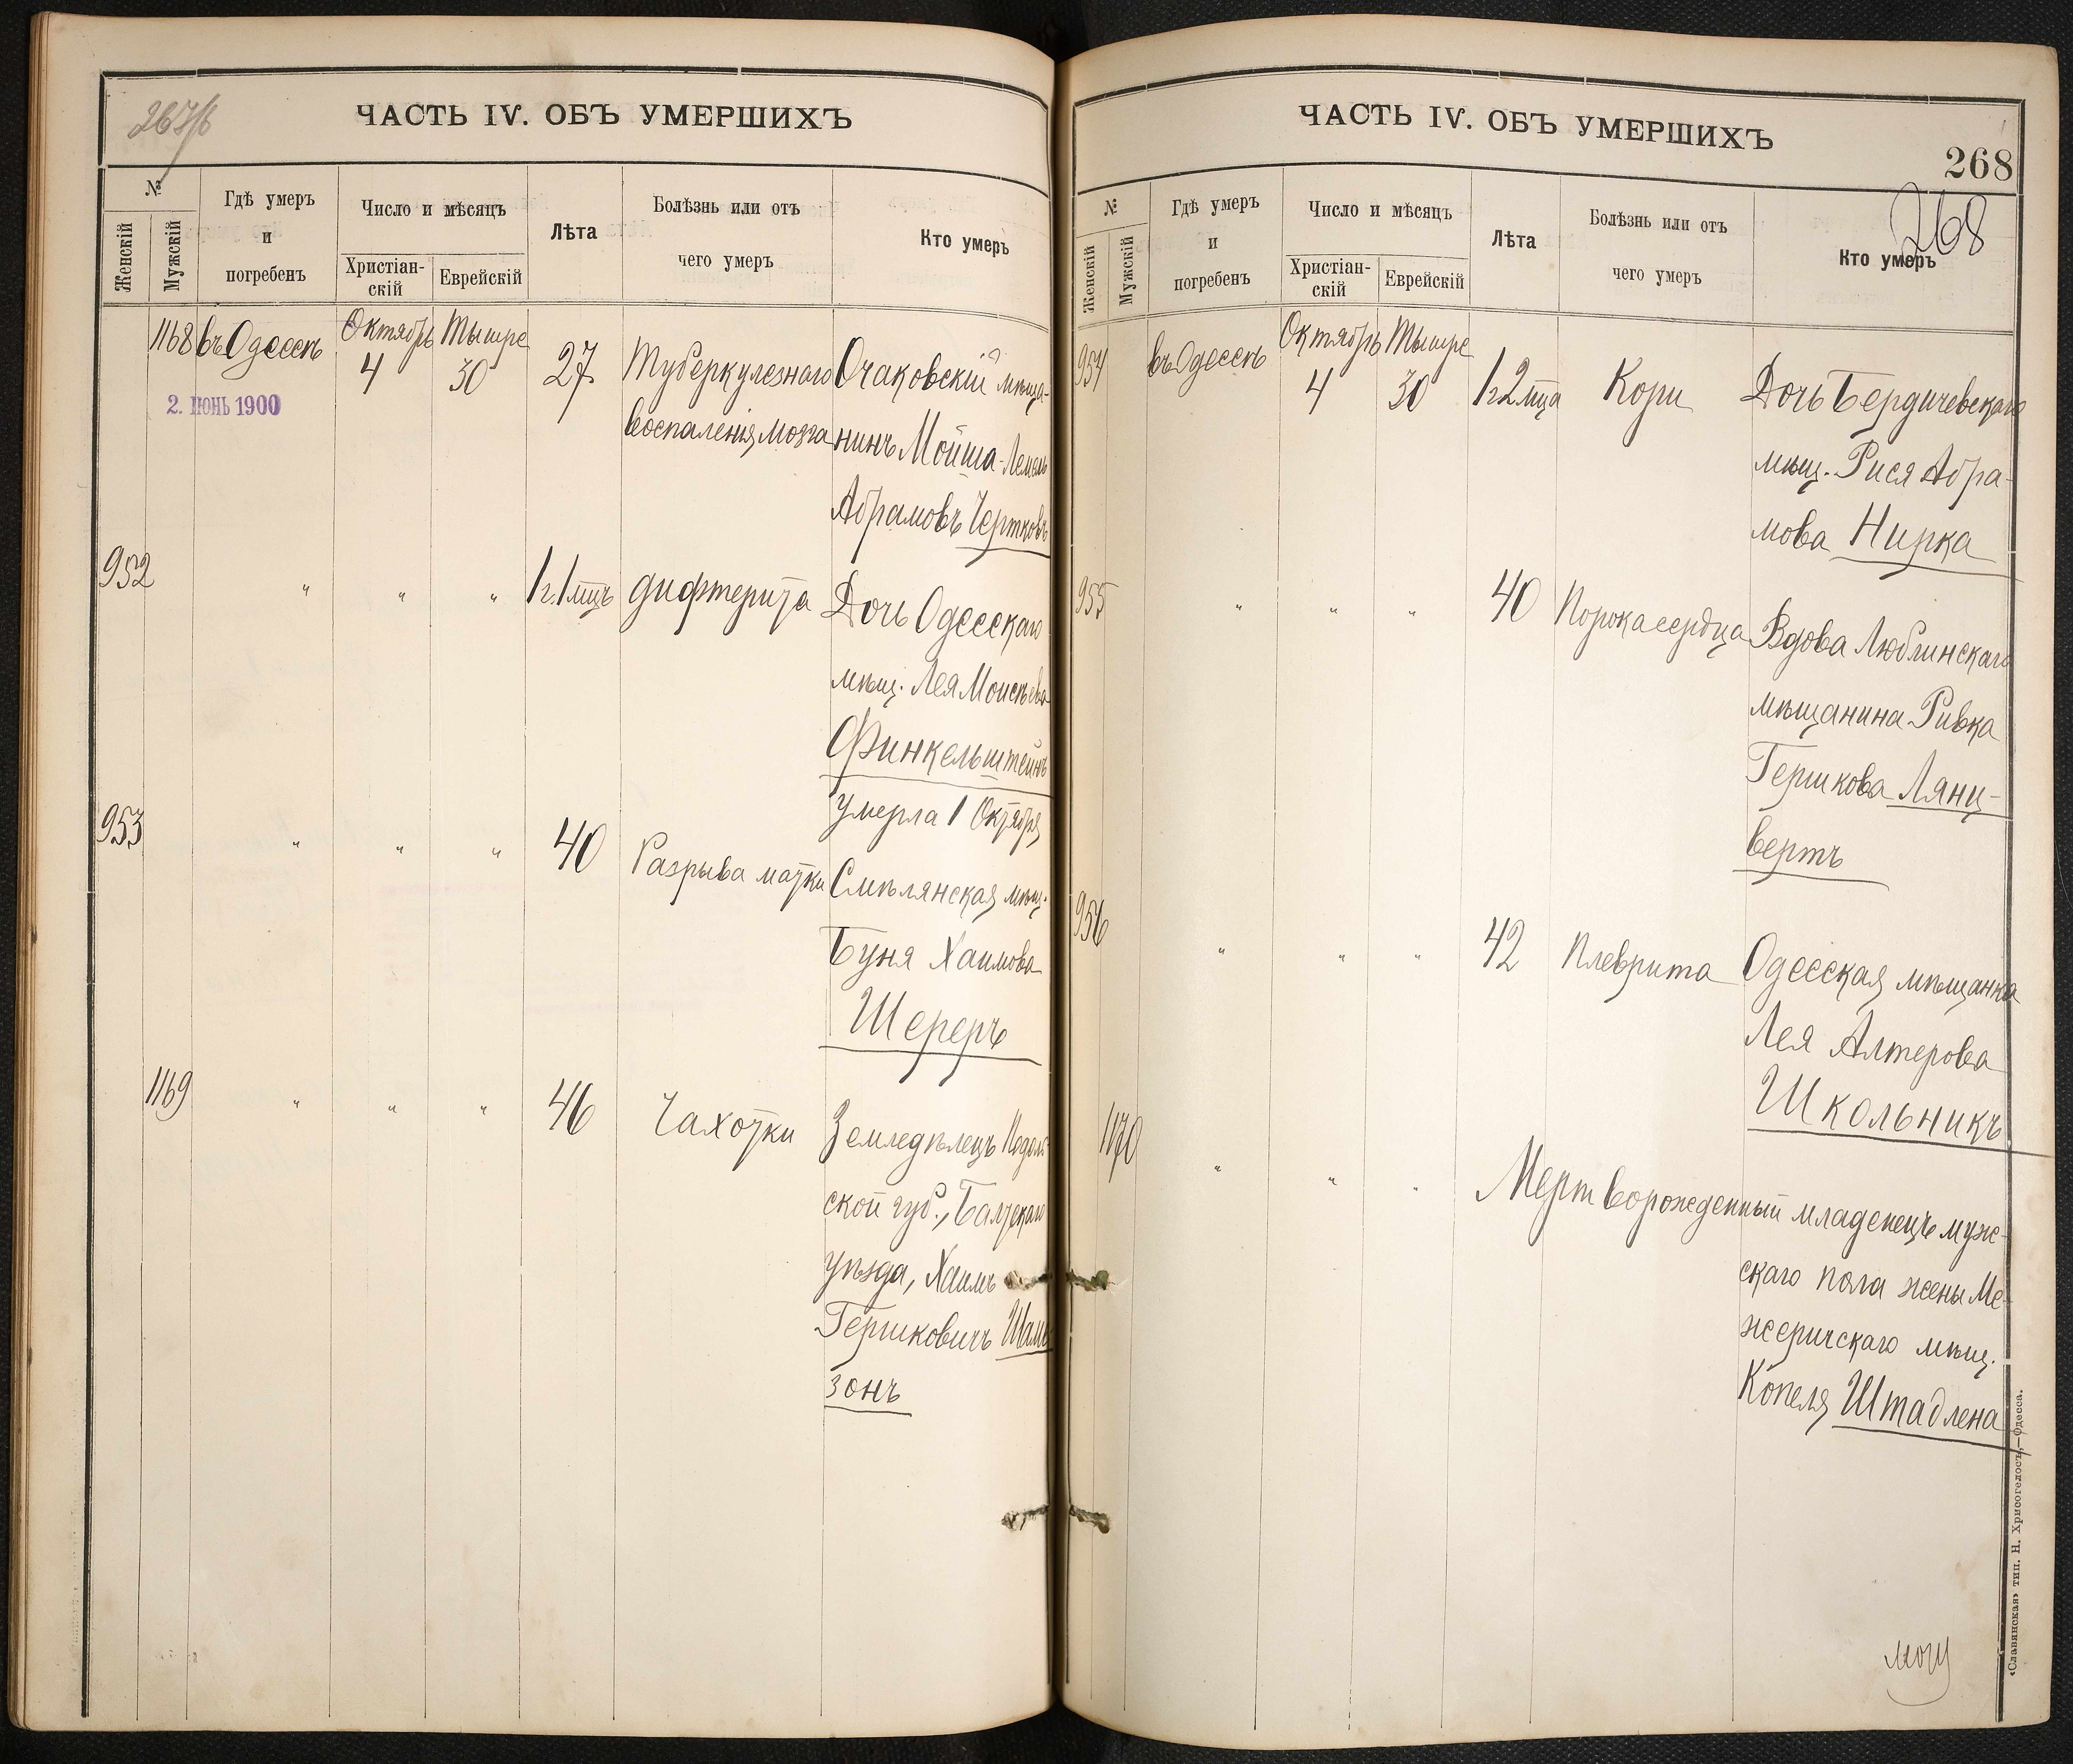 267/б
ЧАСТЬ IV. ОБЪ УМЕРШИХЪ
№
Женскій
Мужскій
Гдѣ умеръ
и
погребенъ
Число и мѣсяцъ
Христіан-
скій
Еврейскій
Лѣта
Болѣзнь или отъ
чего умеръ
Кто умеръ
1168 въ Одессѣ Октябрь 4 Тышре 30 27 Туберкулезнаго Очаковскій мѣща-
2. ІЮНЬ 1900
воспаленія мозга нинъ Мойша-Лемель
Абрамовъ Чертковъ
952 " " " 1 г. 1 мцъ дифтерита Дочь Одесскаго
мѣщ. Лея Моисѣева
Финкельштейнъ
умерла 1 Октября
953 " " " 40 Разрыва матки Смѣлянская мѣщ.
Буня Хаимова
Шереръ
1169 " " " 46 Чахотки Земледѣлецъ Подоль
ской губ., Балтскаго
уѣзда, Хаимъ
Гершковичъ Шам
зонъ
ЧАСТЬ IV. ОБЪ УМЕРШИХЪ
268
268
№
Женскій
Мужскій
Гдѣ умеръ
и
погребенъ
Число и мѣсяцъ
Христіан-
скій
Еврейскій
Лѣта
Болѣзнь или отъ
чего умеръ
Кто умеръ
954 въ Одессѣ Октябрь 4 Тышре 30 1 г 2 мца Кори Дочь Бердичевскаго
мѣщ. Рися Абра-
мова Нирка
955 " " " 40 Порока сердца Вдова Люблинскаго
мѣщанина Ривка
Гершкова Лянц-
вертъ
956 " " " 42 Плеврита Одесская мѣщанка
Лея Алтерова
Школьникъ
1170 " " " Мертворожденный младенецъ муж-
скаго пола жены Ме-
жеричскаго мѣщ.
Копеля Штадлена
«Славянская» тип. Н. Хрисогелосъ,—Одесса.